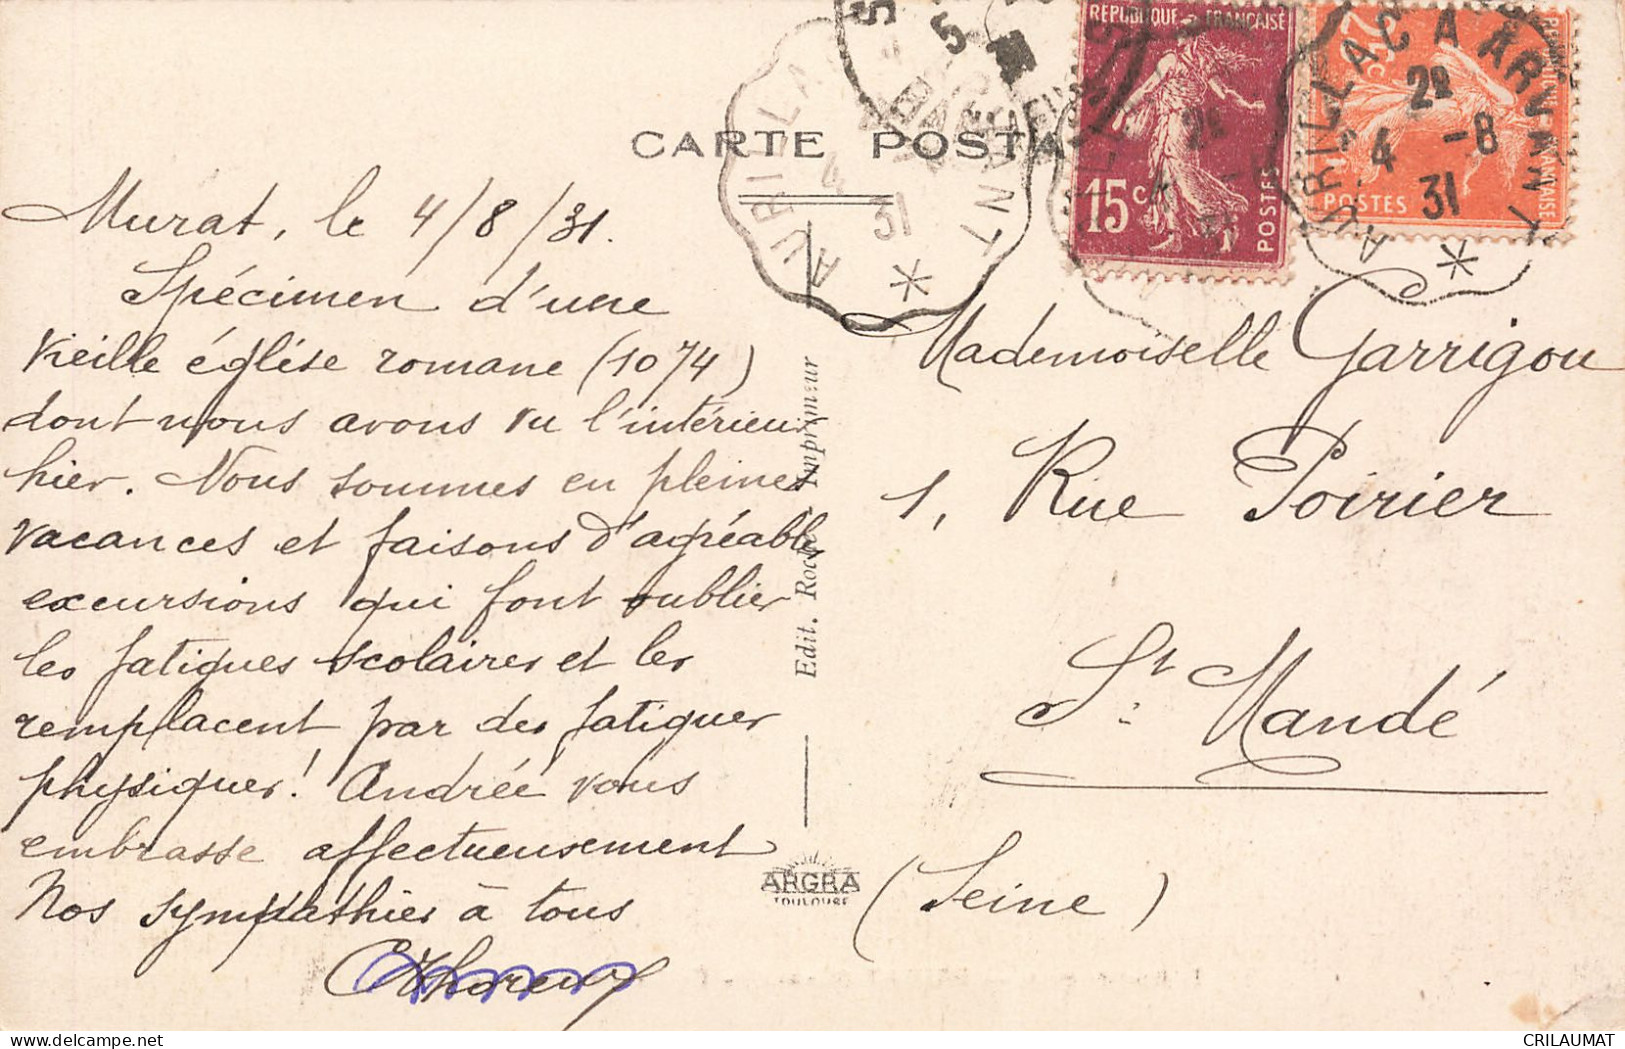 CARTE POSTA
Murat, le 4/8/31.
Spécimen d'une
vieille église romane (1074)
dont nous avons vu l'intérieur
hier. Nous sommes en pleines
vacances et faisons d'agréables
excursions qui font oublier
les fatigues scolaires et les
remplacent par des fatigues
physiques! Andrée vous
embrasse affectueusement
Nos sympathies à tous
Edit. Imprimeur
ARGRA
TOULOUSE
RÉPUBLIQUE FRANÇAISE
15c
POSTES
25c
POSTES
AURILLAC A ARVANT
2e
4 -8
31
AURILLA
ANT
4
31
Mademoiselle Garrigou
1, Rue Poirier
St. Mandé
(Seine)
CRILAUMAT